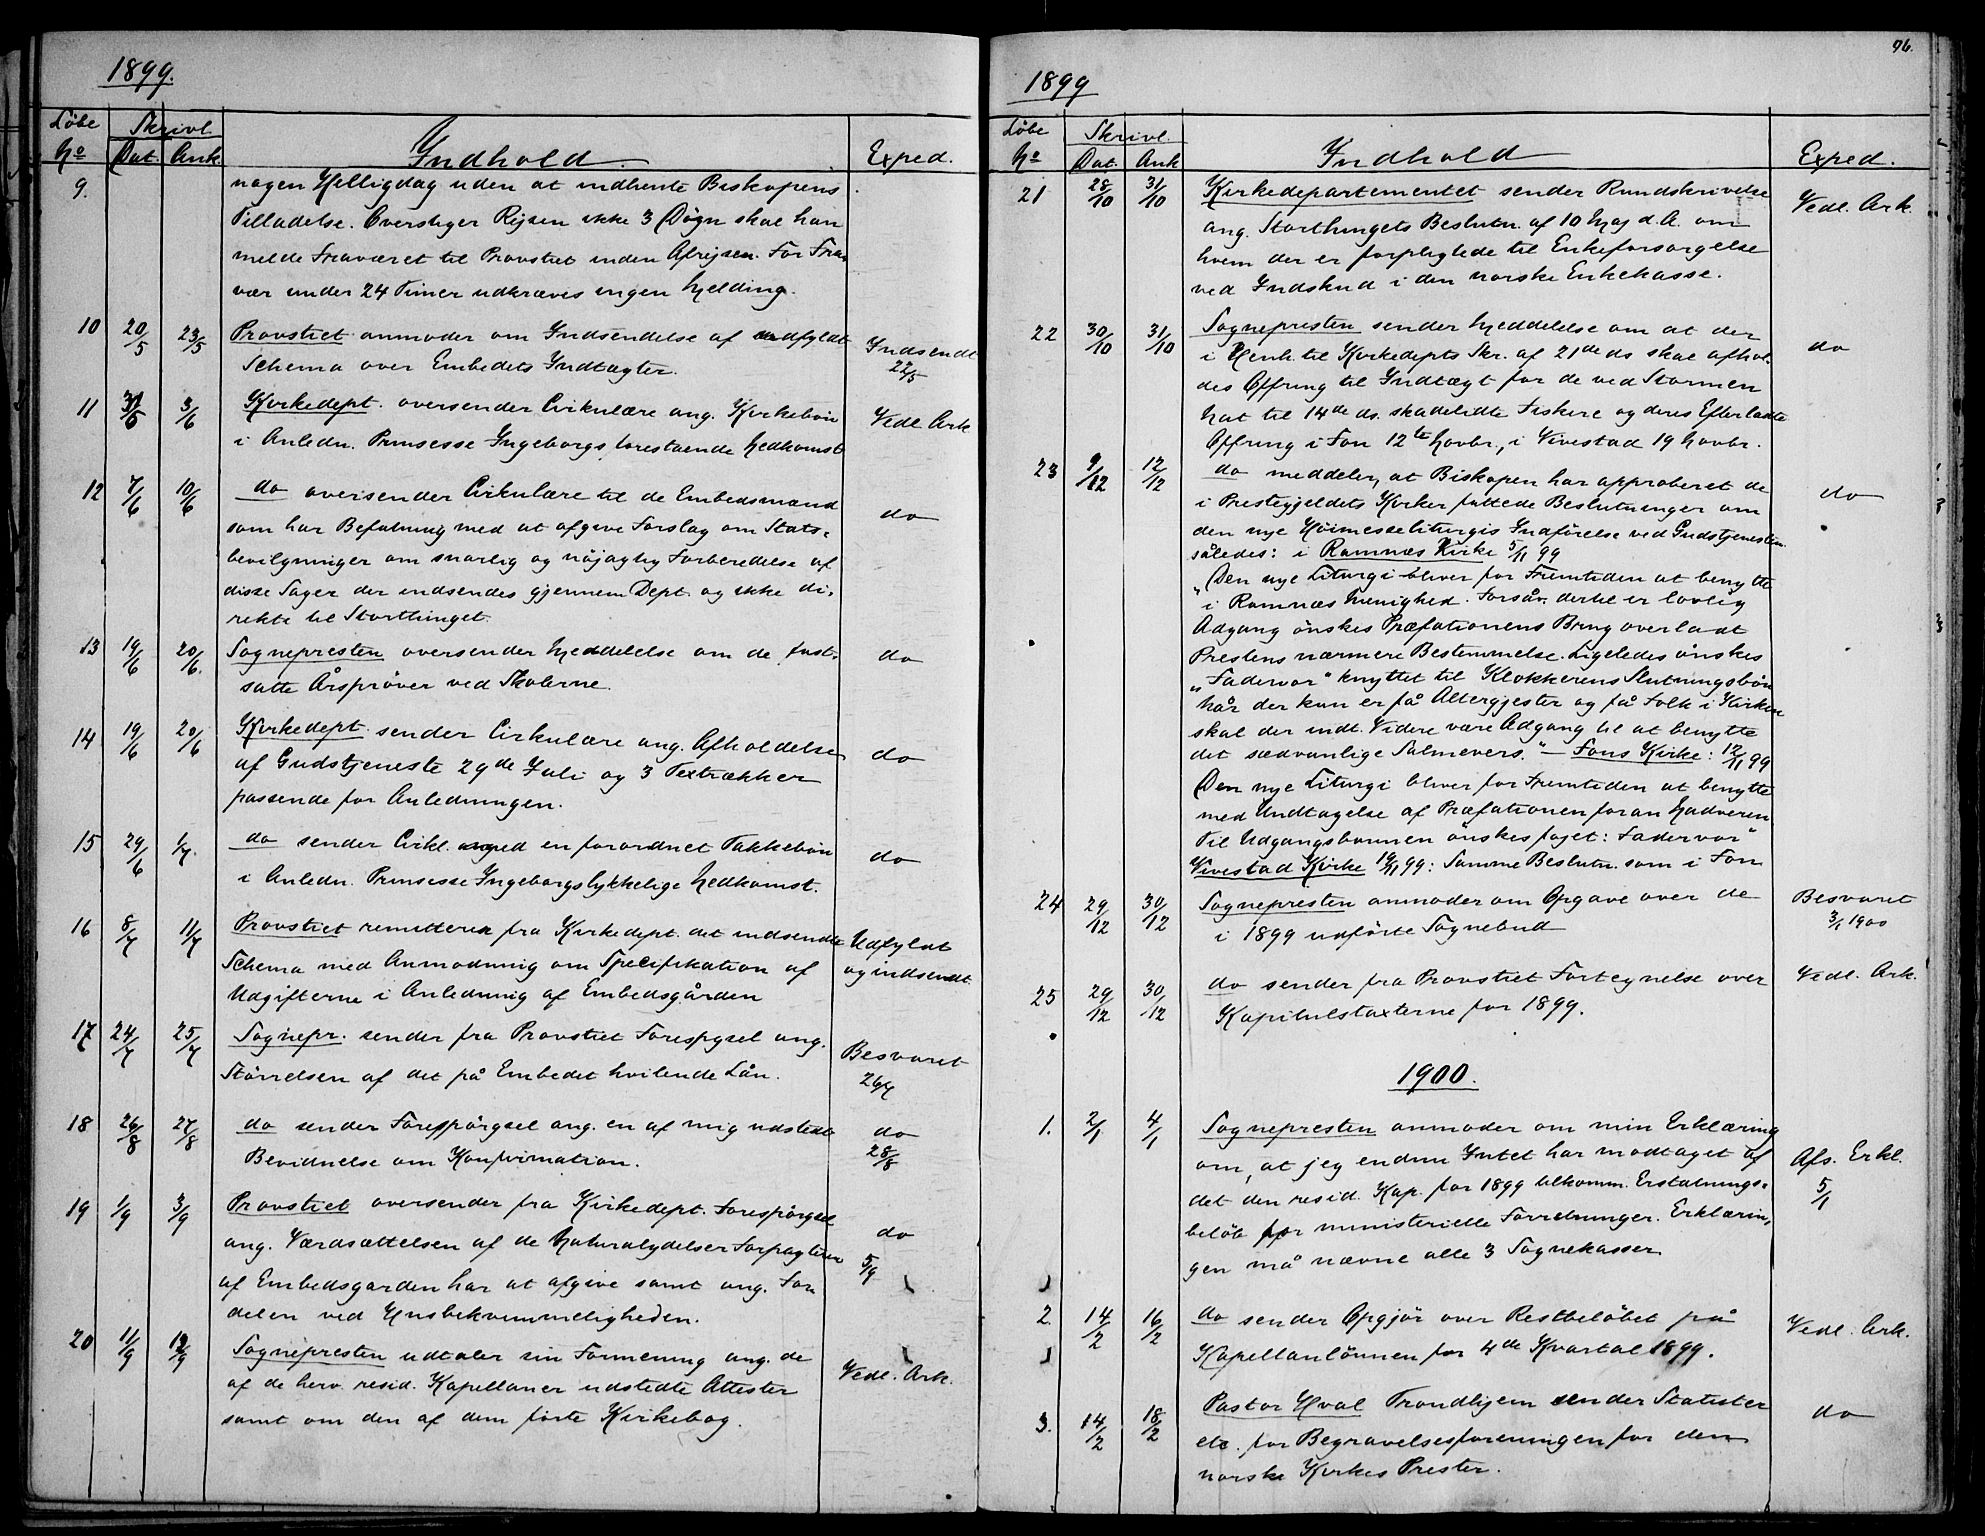 1899.
Løbe No Skrivl. Dat. Ank. Indhold. Exped.
9. nogen Helligdag uden at indhente Biskopens
Tilladelse. Overstiger Rejsen ikke 3 Døgn skal han
melde Fraværet til Provstiet inden Afrejsen. For Fra-
vær under 24 Timer udkræves ingen Melding.
10 20/5 23/5 Provstiet anmoder om Indsendelse af udfyldt Indsendt
Schema over Embedets Indtægter. 22/5
11 31/5 3/6 Kirkedept. oversender Cirkulære ang. Kirkebøn Vedl. Ark
i Anledn. Prinsesse Ingeborgs forestaaende Nedkomst
12 7/6 10/6 do oversender Cirkulære til de Embedsmænd do
som har Befatning med at afgive Forslag om Stats-
bevilgninger om snarlig og nøjagtig Forberedelse af
disse Sager der indsendes gjennem Dept. og ikke di-
rekte til Storthinget.
13 19/6 20/6. Sognepresten oversender Meddelelse om de fast- do
satte Årsprøver ved Skolerne.
14 19/6 20/6 Kirkedept. sender Cirkulære ang. Afholdelse do
af Gudstjeneste 29de Juli og 3 Textrækker
passende for Anledningen.
15 29/6 1/7. do sender Cirkl. med en forordnet Takkebøn do
i Anledn. Prinsesse Ingeborgs lykkelige Nedkomst.
16 8/7 11/7 Provstiet remitterer fra Kirkedept. det indsendte Udfyldt
Schema med Anmodning om Specifikation af og indsendt
Udgifterne i Anledning af Embedsgården
17 24/7 25/7 Sognepr. sender fra Provstiet Forespgsel ang. Besvaret
Størrelsen af det på Embedet hvilende Lån. 26/7
18 26/8 27/8 do sender Forespørgsel ang. en af mig udstedt do
Bevidnelse om Konfirmation. 28/8
19 1/9 3/9 Provstiet oversender fra Kirkedept. Forespørgsel do
ang. Værdsættelsen af de Naturalydelser Forpagteren 5/9
af Embedsgarden har at afgive samt ang. For-
delen ved Husbekvemmeligheden.
20 11/9 12/9 Sognepresten udtaler sin Formening ang. de Vedl. Ark.
af de herv. resid. Kapellaner udstedte Attester
samt om den af dem førte Kirkebog.
96.
1899
Løbe No Skrivl. Dat. Ank Indhold Exped.
21 28/10 31/10 Kirkedepartementet sender Rundskrivelse Vedl. Ark.
ang. Storthingets Beslutn. af 10 Maj d.A. om
hvem der er forpligtede til Enkeforsørgelse
ved Indskud i den norske Enkekasse.
22 30/10 31/10 Sognepresten sender Meddelelse om at der do
i Henh. til Kirkedepts Skr. af 21de ds skal afhol-
des Offring til Indtægt for de ved Stormen
Nat til 14de ds. skadelidte Fiskere og deres Efterladte
Offring i Fon 12te Novbr., i Vivestad 19 Novbr.
23 9/12 12/12 do meddeler, at Biskopen har approberet de do
i Prestegjeldets Kirker fattede Beslutninger om
den nye Høimesseliturgis Indførelse ved Gudstjenesten
således: i Ramnæs Kirke 5/11 99
"Den nye Liturgi bliver for Fremtiden at benytte
i Ramnæs Menighed. Forsåv. dertil er lovlig
Adgang ønskes Præfationens Brug overladt
Prestens nærmere Bestemmelse. Ligeledes ønskes
"Fadervor" knyttet til Klokkerens Slutningsbøn
Når der kun er få Altergjester og få Folk i Kirken
skal der indt. Videre være Adgang til at benytte
det sædvanlige Salmevers." – Fons Kirke: 12/11 99
Den nye Liturgi bliver for Fremtiden at benytte
med Undtagelse af Præfationen foran Nadveren
Til Udgangsbønnen ønskes føjet: Fadervor"
Vivestad Kirke 19/11 99: Samme Beslutn. som i Fon
24 29/12 30/12 Sognepresten anmoder om Opgave over de Besvaret
i 1899 udførte Sognebud 3/1 1900
25 29/12 30/12 do sender fra Provstiet Fortegnelse over Vedl. Ark.
Kapitulstaxterne for 1899.
1900.
1. 2/1 4/1 Sognepresten anmoder om min Erklæring
om, at jeg endnu Intet har modtaget af Afs. Erkl.
det den resid. Kap. for 1899 tilkomm. Erstatnings- 5/1
beløb for ministerielle Forretninger. Erklærin-
gen må nævne alle 3 Sognekasser
2. 14/2 16/2 do sender Opgjør over Restbeløbet på Vedl. Ark.
Kapellanlønnen for 4de Kvartal 1899.
3. 14/2 18/2 Pastor Hval Trondhjem sender Statuter do
etc. for Begravelsesforeningen for den
norske Kirkes Prester.